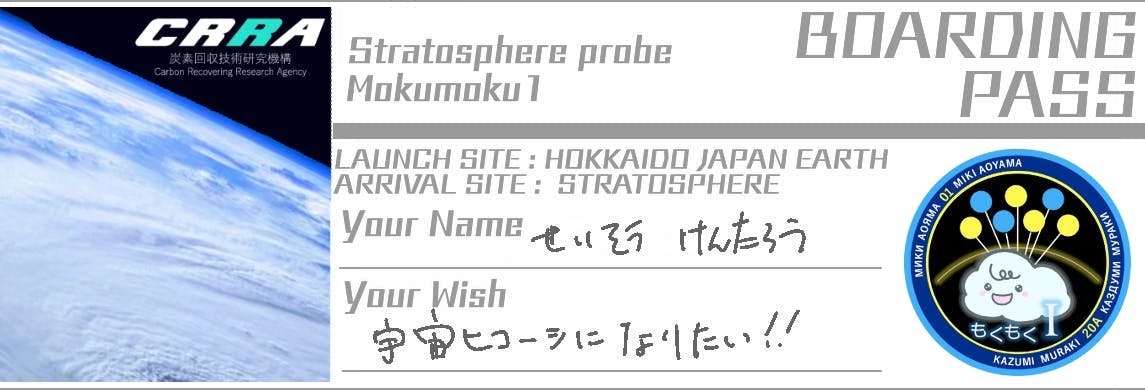 CRRA
炭素回収技術研究機構
Carbon Recovering Research Agency
Stratosphere probe
Mokumoku1
BOARDING
PASS
LAUNCH SITE : HOKKAIDO JAPAN EARTH
ARRIVAL SITE : STRATOSPHERE
Your Name せいそう けんたろう
Your Wish
宇宙ヒコーシになりたい!!
МИКИ АОЯМА 01 MIKI AOYAMA
もくもく I
KAZUMI MURAKI 20A КАЗДУМИ МУРАКИ